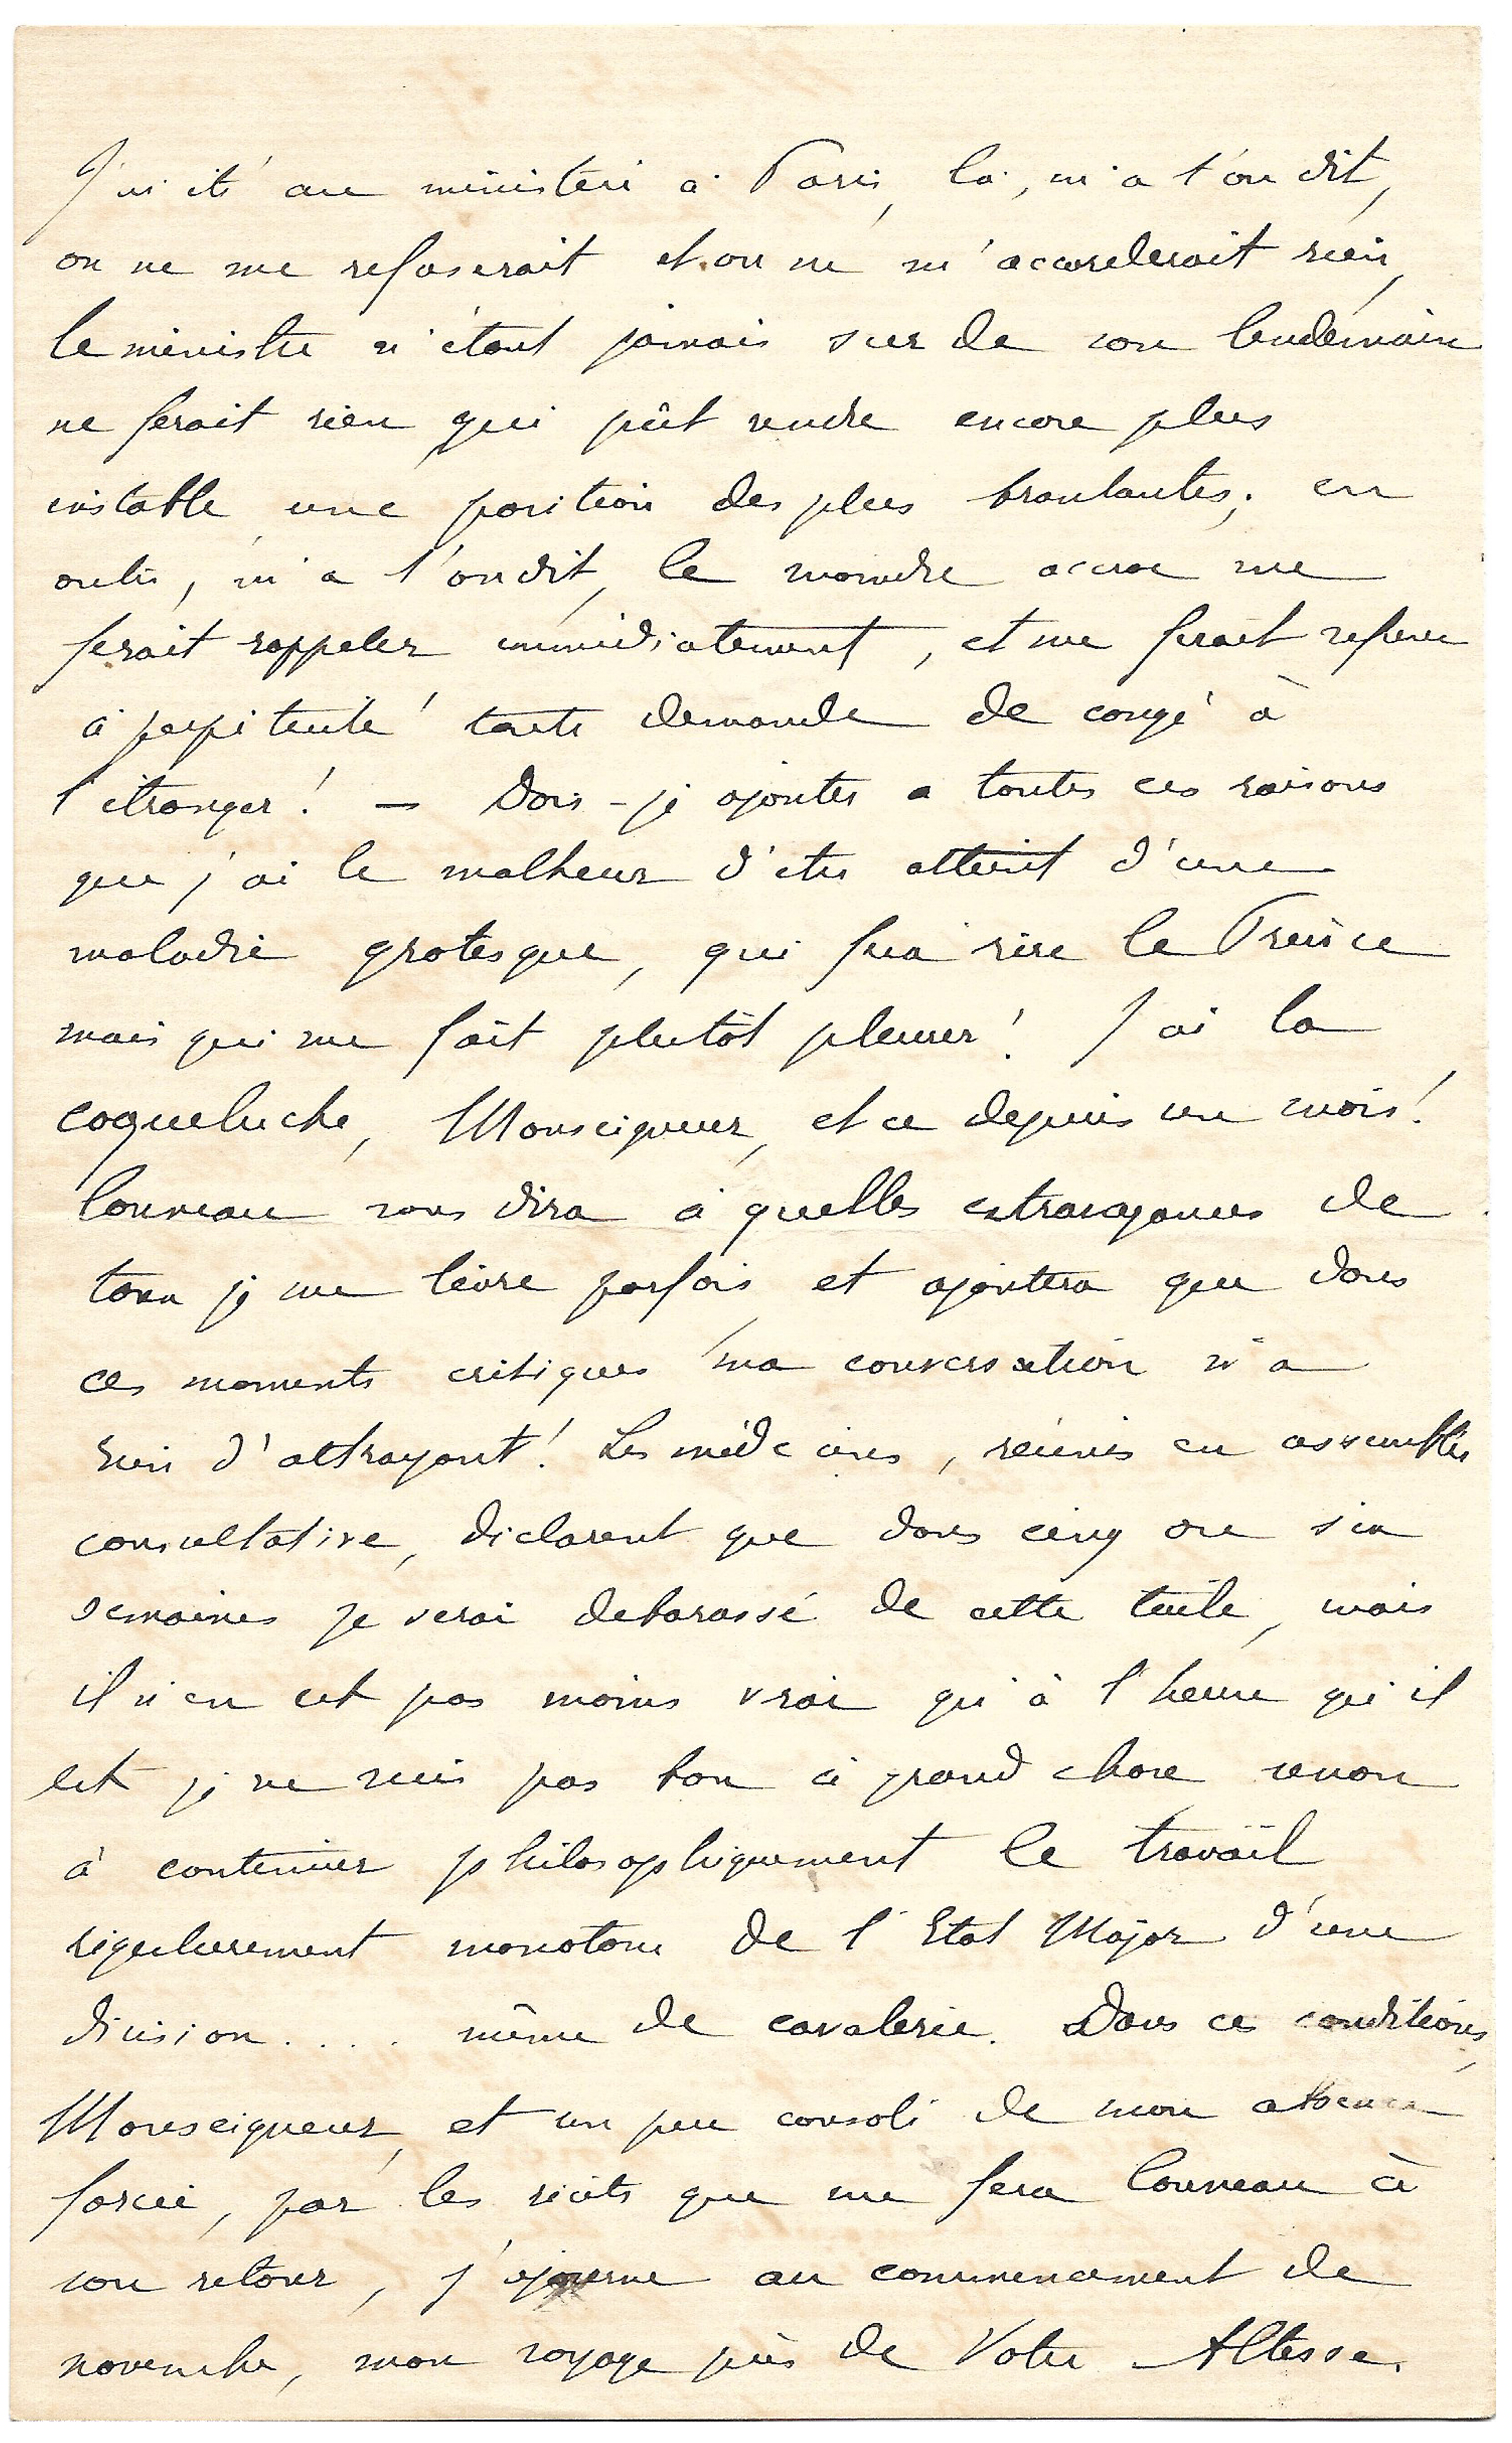 J'ai été au ministère à Paris, là, m'a t'on dit,
on ne me refuserait et on ne m'accorderait rien,
le ministre n'étant jamais sur de son lendemain
ne ferait rien qui pût rendre encore plus
instable une position des plus branlantes; en
outre, m'a t'on dit, le moindre accroc me
ferait rappeler immédiatement, et me ferait refuser
à perpétuité toute demande de congé à
l'étranger! — Dois-je ajouter a toutes ces raisons
que j'ai le malheur d'etre atteint d'une
maladie grotesque, qui fera rire le Prince
mais qui me fait plutôt pleurer! J'ai la
coqueluche, Monseigneur, et ce depuis un mois!
Louveau vous dira à quelles extravagances de
toux je me livre parfois et ajoutera que dans
ces moments critiques ma conversation n'a
rien d'attrayant! Les médecins, réunis en assemblée
consultative, déclarent que dans cinq ou six
semaines je serai debarassé de cette tuile, mais
il n'en est pas moins vrai qu'à l'heure qu'il
est je ne suis pas bon à grand chose sinon
à continuer philosophiquement le travail
régulierement monotone de l'Etat Major d'une
division.... même de cavalerie. Dans ces conditions,
Monseigneur, et un peu consolé de mon absence
forcée, par les récits que me fera Louveau à
son retour, j'ajourne au commencement de
novembre, mon voyage près de Votre Altesse.